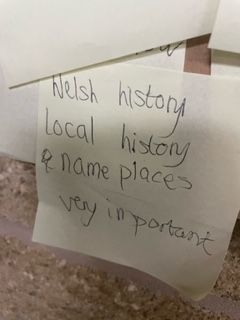 Welsh history
Local history
& name places
very important